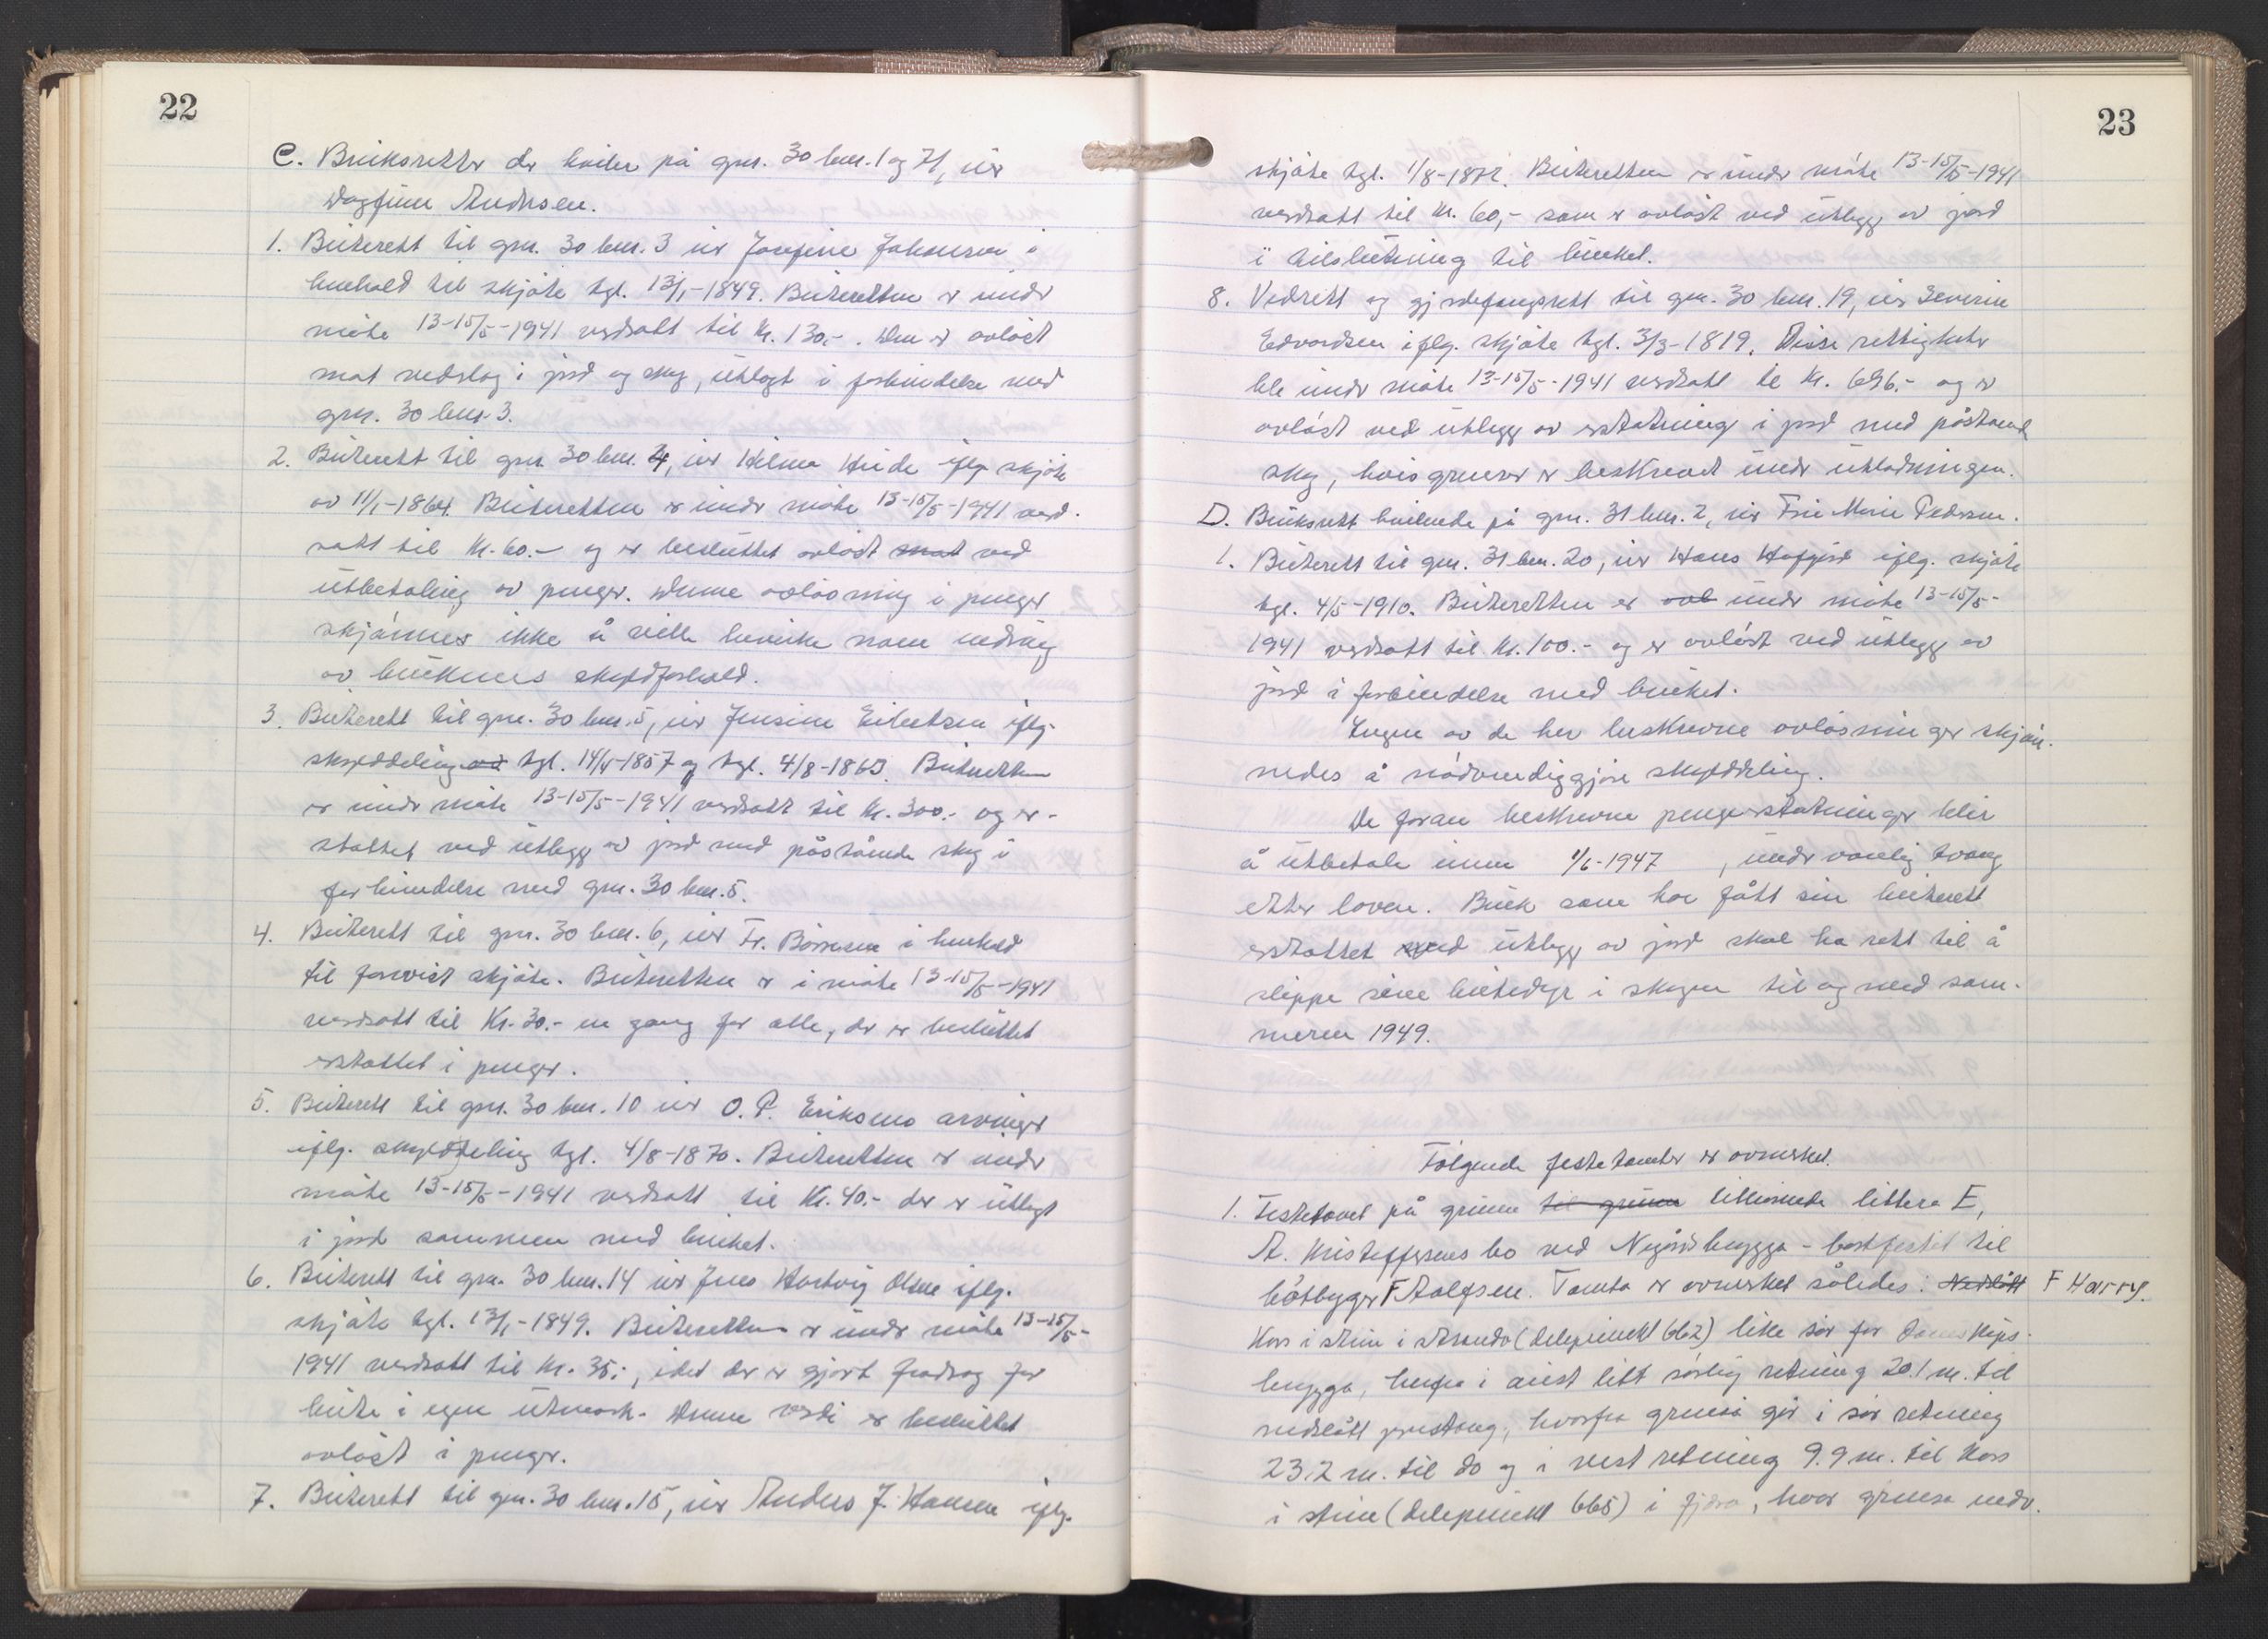 22
C. Bruksretter der hviler på gnr. 30 bnr. 1 og 71, eier
Dagfinn Andersen.
1. Beiterett til gnr. 30 bnr. 3 eier Josefine Johansen i
henhold til skjöte tgl. 13/1-1849. Beiteretten er under
möte 13-15/5-1941 verdsatt til kr. 130.-. Den er avlöst
mot vederlag i jord og skog, utlagt i forbindelse med
gnr. 30 bnr. 3.
2. Beiterett til gnr. 30 bnr. 4, eier Hilma Heide iflg. skjöte
av 11/1-1864. Beiteretten er under möte 13-15/5-1941 verd-
satt til kr. 60.- og er besluttet avlöst mot ved
utbetaling av penger. Denne avlösning i penger
skjönnes ikke å ville bevirke noen endring
av brukenes skyldforhold.
3. Beiterett til gnr. 30 bnr. 5, eier Jensine Eilertsen iflg.
skylddeling av tgl. 14/4-1857 og tgl. 4/8-1863. Beiteretten
er under möte 13-15/5-1941 verdsatt til kr. 300.- og er-
stattet ved utlegg av jord med påstående skog i
forbindelse med gnr. 30 bnr. 5.
4. Beiterett til gnr. 30 bnr. 6, eier Fr. Börresen i henhold
til forevist skjöte. Beiteretten er i möte 13-15/5-1941
verdsatt til Kr. 30.- en gang for alle, der er besluttet
erstattet i penger.
5. Beiterett til gnr. 30 bnr. 10 eier O. P. Eriksens arvinger
iflg. skylddeling tgl. 4/8-1870. Beiteretten er under
möte 13-15/5-1941 verdsatt til Kr. 40.- der er utlagt
i jord sammen med bruket.
6. Beiterett til gnr. 30 bnr. 14 eier Jens Hartvig Olsen iflg.
skjöte tgl. 13/1-1849. Beiteretten er under möte 13-15/5-
1941 verdsatt til kr. 35.-, idet der er gjort fradrag for
beite i egen utmark. Denne verdi er besluttet
avlöst i penger.
7. Beiterett til gnr. 30 bnr. 15, eier Anders J. Hansen iflg.
23
skjöte tgl. 1/8-1872. Beiteretten er under möte 13-15/5-1941
verdsatt til kr. 60,- som er avlöst ved utlegg av jord
i tilslutning til bruket.
8. Vedrett og gjerdefangsrett til gnr. 30 bnr. 19, eier Severin
Edvardsen iflg. skjöte tgl. 3/3-1819. Disse rettigheter
ble under möte 13-15/5-1941 verdsatt til kr. 696.- og er
avlöst ved utlegg av erstatning i jord med påstående
skog, hvis grenser er beskrevet under utlodningen.
D. Bruksrett hvilende på gnr. 31 bnr. 2, eier Fru Marie Pedersen.
1. Beiterett til gnr. 31 bnr. 20, eier Hans Hofgård iflg. skjöte
tgl. 4/5-1910. Beiteretten er avl under möte 13-15/5-
1941 verdsatt til kr. 100.- og er avlöst ved utlegg av
jord i forbindelse med bruket.
Ingen av de her beskrevne avlösninger skjön-
nedes å nödvendiggjöre skylddeling.
De foran beskrevne pengeerstatninger blir
å utbetale innen 1/6-1947, under vanlig tvang
etter loven. Bruk som har fått sin beiterett
erstattet med utlegg av jord skal ha rett til å
slippe sine beitedyr i skogen til og med som-
meren 1949.
Fölgende festetomter er avmerket.
1. Festetomt på grunn til grunn tilhörende littera E,
A. Kristoffersens bo ved Nygårdsbrygga - bortfestet til
båtbygger F Adolfsen. Tomta er avmerket således: Nedslått F Harry.
Kors i stein i stranda (delepunkt 662) like sör for Kips-
brygga, herfra i aust litt sörlig retning 20.1 m. til
nedslått jernstang, hvorfra grensa går i sör retning
23.2 m. til do og i vest retning 9.9 m. til kors
i stein (delepunkt 665) i fjæra, hvor grensa nedv.